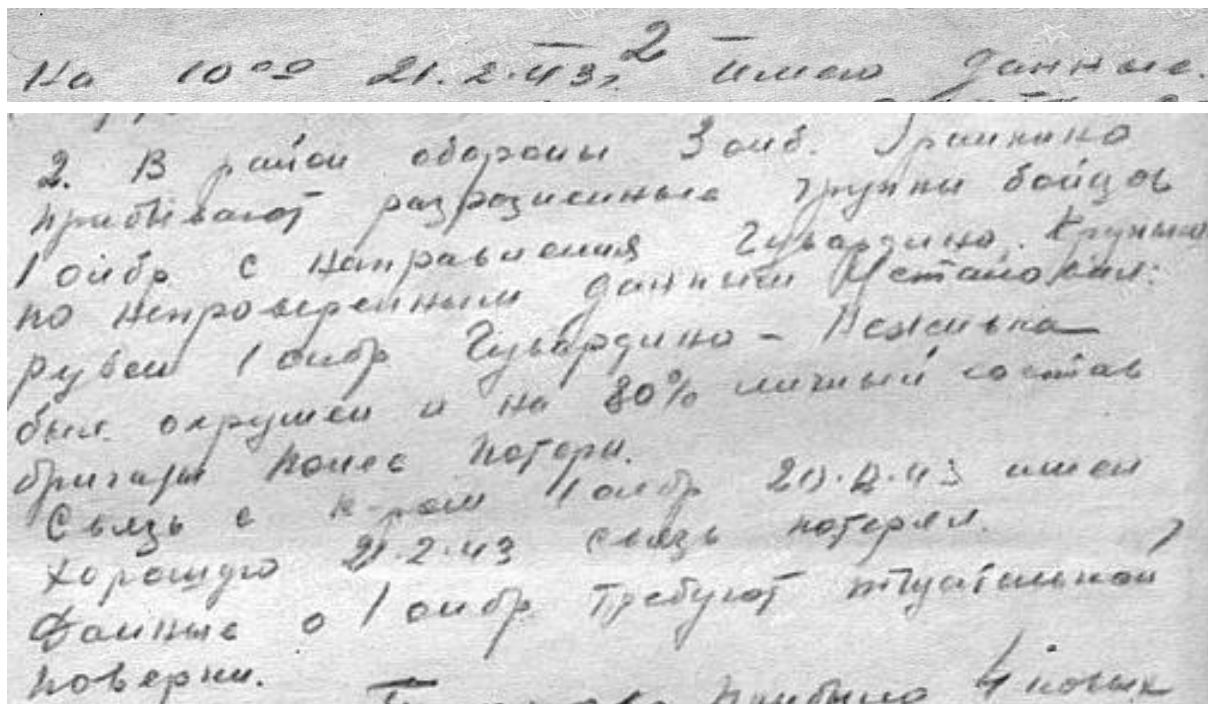 - 2 -
На 10 00 21.2.43г. имею данные.
2. В район обороны 3 оиб. Гранкино
прибывают разрозненные группы бойцов
1 оибр с направления Гувардино.
по непроверенным данным установил:
рубеж 1 оибр Гувардино -
был окружен и на 80% личный состав
бригады понес потери.
Связь с к-ром 1 оибр 20.2.43 имел
хорошую 21.2.43 связь потерял.
Данные о 1 оибр требуют тщательной
поверки.
прибыло 4 новых